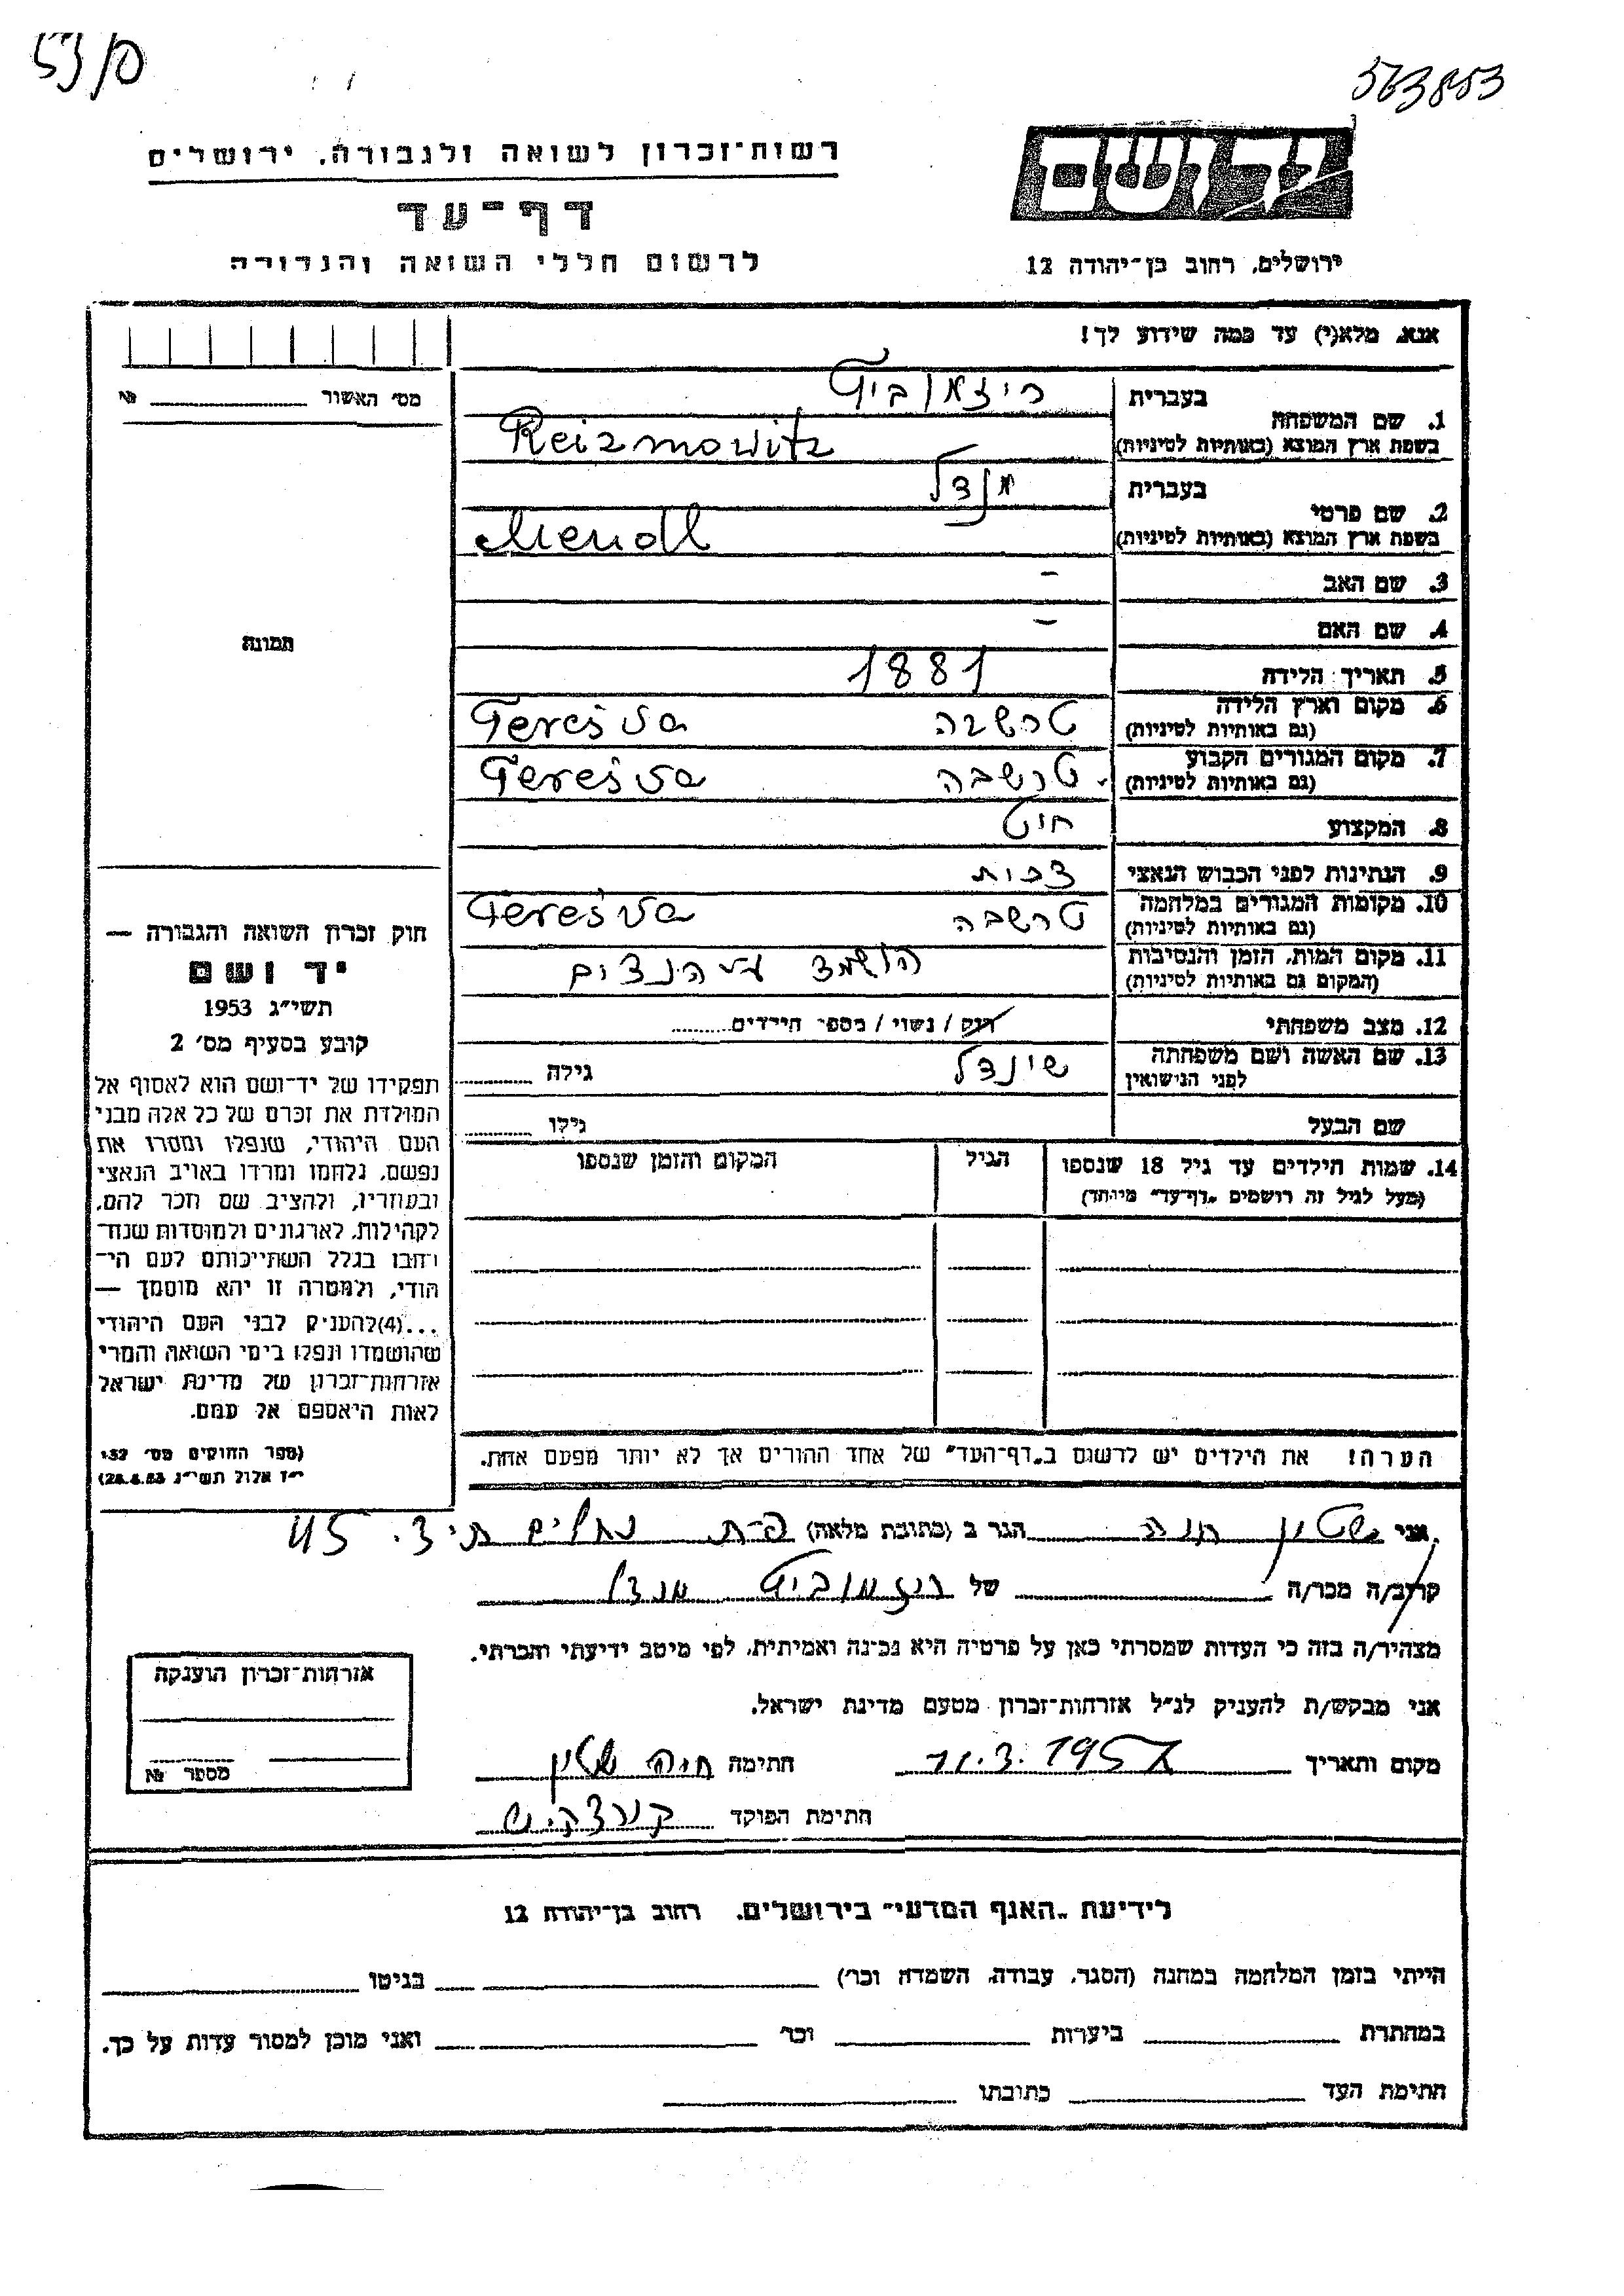 563853
רשות־זכרון לשואה ולגבורה. ירושלים
יד ושם
דף־עד
לרשום חללי השואה והגבורה
ירושלים, רחוב בן־יהודה 12
אנא, מלא(י) עד כמה שידוע לך!
מס׳ האשור №
1. שם המשפחה
בעברית ריזמוביץ
בשפת ארץ המוצא (באותיות לטיניות) Reizmowitz
2. שם פרטי
בעברית מנדל
בשפת ארץ המוצא (באותיות לטיניות) Mendl
3. שם האב -
4. שם האם -
תמונה
5. תאריך הלידה 1881
6. מקום וארץ הלידה (גם באותיות לטיניות) טרשבה Terešva
7. מקום המגורים הקבוע (גם באותיות לטיניות) טרשבה Terešva
8. המקצוע חיט
9. הנתינות לפני הכבוש הנאצי צכית
10. מקומות המגורים במלחמה (גם באותיות לטיניות) טרשבה Terešva
11. מקום המות, הזמן והנסיבות (המקום גם באותיות לטיניות) הושמד ע״י הנצים
12. מצב משפחתי רוק / נשוי / מספר הילדים
13. שם האשה ושם משפחתה לפני הנישואין שינדל גילה
שם הבעל גילו
14. שמות הילדים עד גיל 18 שנספו (מעל לגיל זה רושמים „דף־עד״ מיוחד) הגיל המקום והזמן שנספו
הערה! את הילדים יש לרשום ב„דף־העד״ של אחד ההורים אך לא יותר מפעם אחת.
חוק זכרון השואה והגבורה —
יד ושם
תשי״ג 1953
קובע בסעיף מס׳ 2
תפקידו של יד־ושם הוא לאסוף אל
המולדת את זכרם של כל אלה מבני
העם היהודי, שנפלו ומסרו את
נפשם, נלחמו ומרדו באויב הנאצי
ובעוזריו, ולהציב שם וזכר להם,
לקהילות, לארגונים ולמוסדות שנח־
רבו בגלל השתייכותם לעם הי־
הודי, ולמטרה זו יהא מוסמך —
...(4)להעניק לבני העם היהודי
שהושמדו ונפלו בימי השואה והמרי
אזרחות־זכרון של מדינת ישראל
לאות היאספם אל עמם.
(ספר החוקים מס׳ 132
י״ז אלול תשי״ג 28.8.53)
אני שטין חנה הגר ב (כתובת מלאה) פ־ת 45
קרוב/ה מכר/ה של ריזמוביץ מנדל
מצהיר/ה בזה כי העדות שמסרתי כאן על פרטיה היא נכונה ואמיתית, לפי מיטב ידיעתי והכרתי.
אני מבקש/ת להעניק לנ״ל אזרחות־זכרון מטעם מדינת ישראל.
מקום ותאריך 11.3.195 חתימה חיה שטין
חתימת הפוקד
אזרחות־זכרון הוענקה
מספר №
לידיעת „האגף המדעי״ בירושלים, רחוב בן־יהודה 12
הייתי בזמן המלחמה במחנה (הסגר, עבודה, השמדה וכר׳) בגיטו
במחתרת ביערות וכר׳ ואני מוכן למסור עדות על כך.
חתימת העד כתובתו